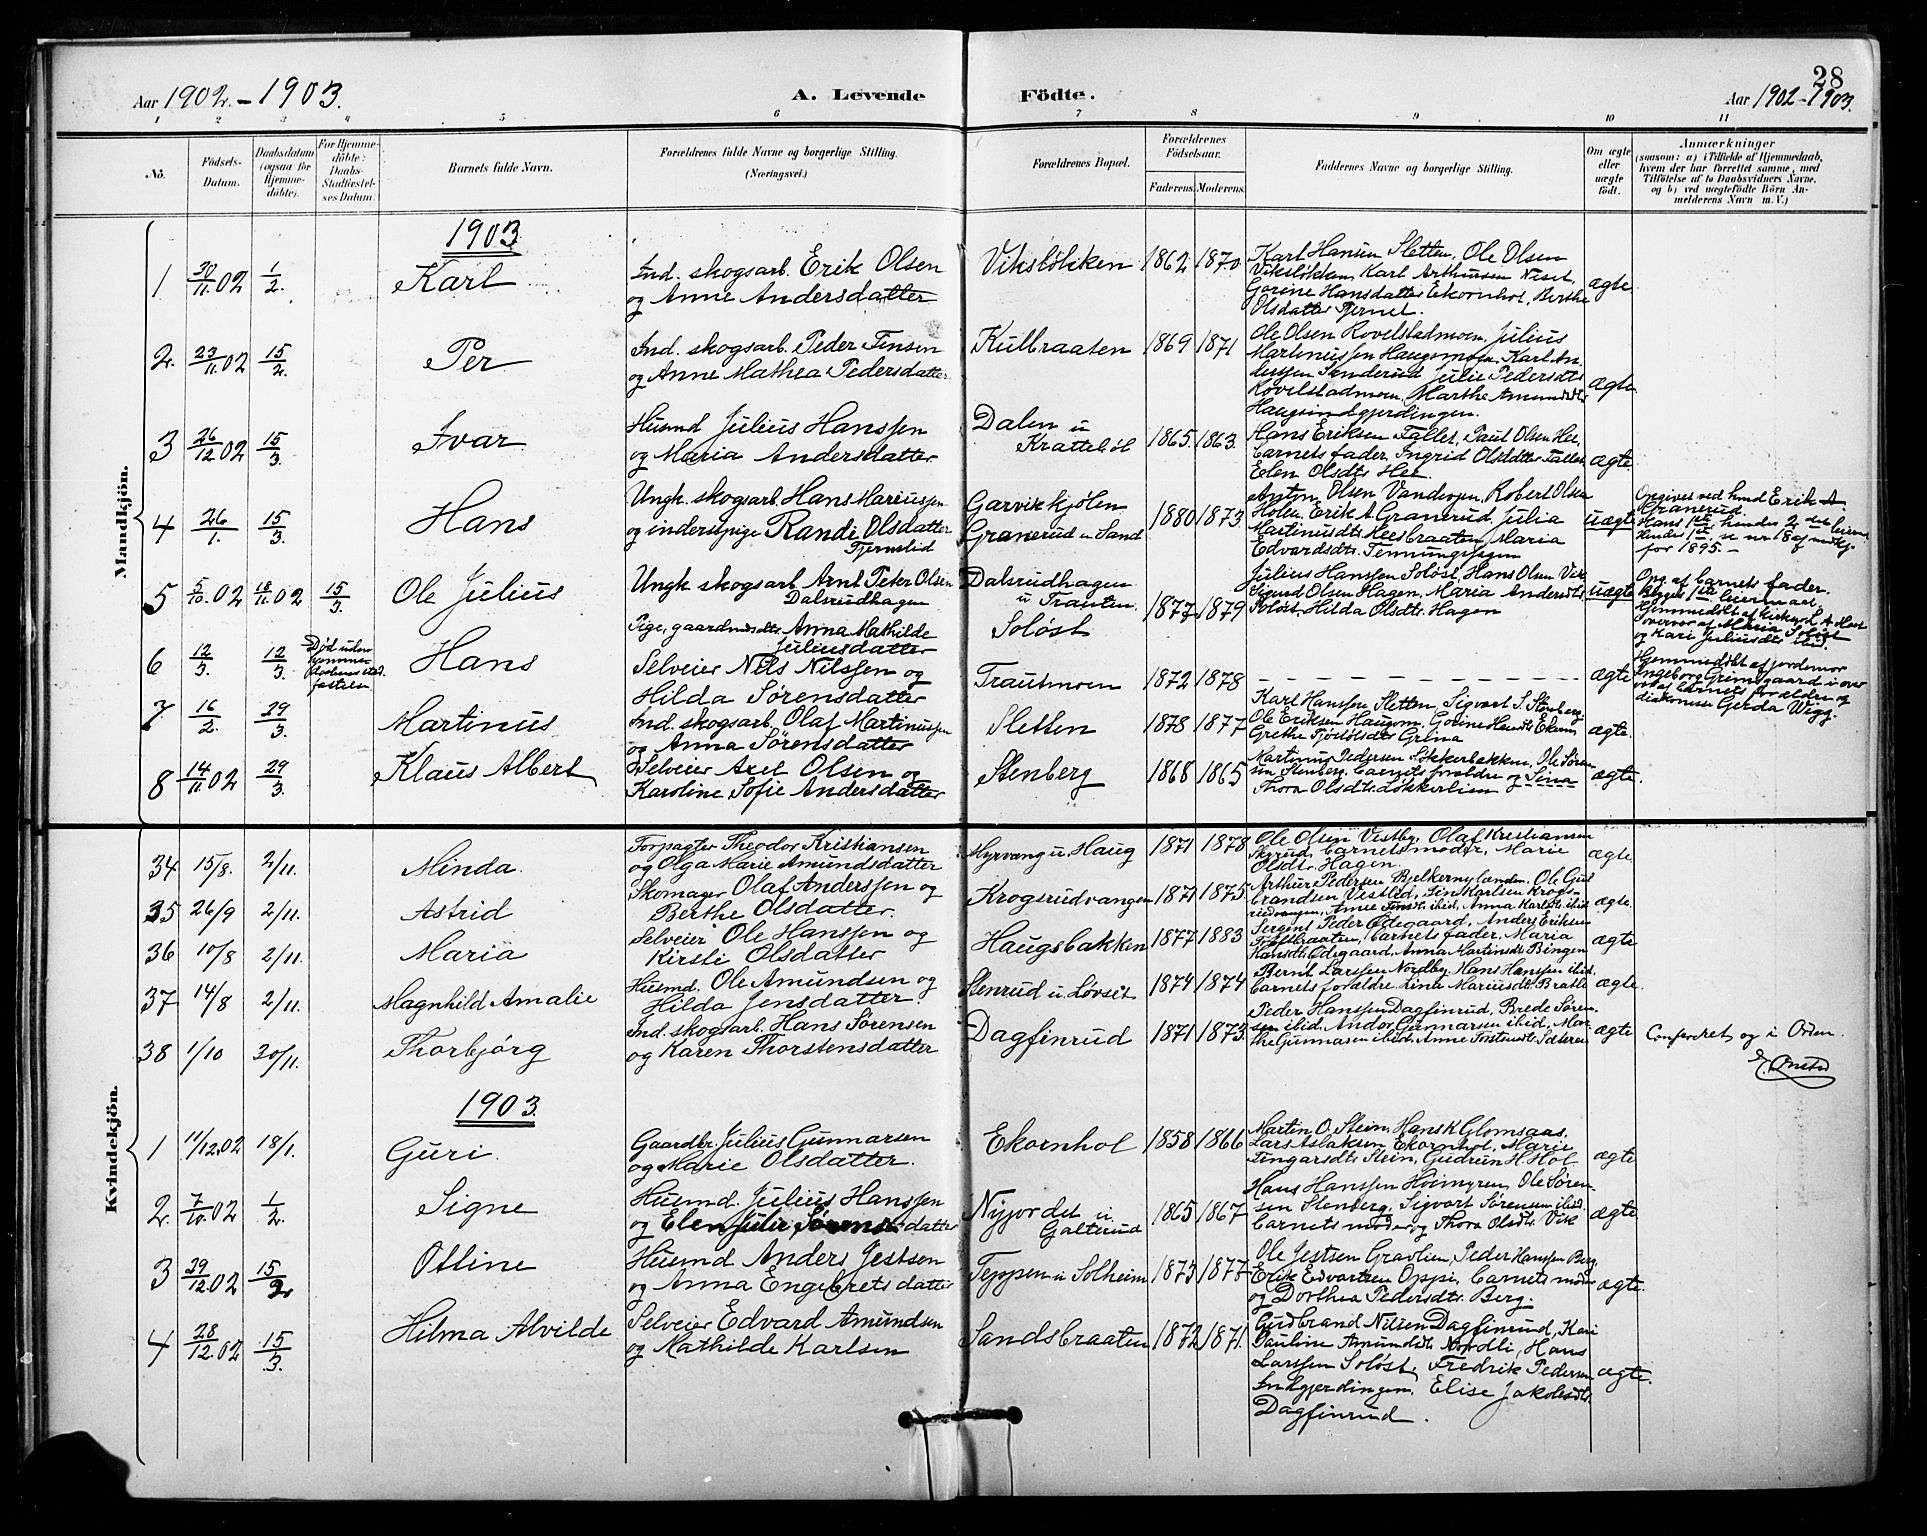 28
Aar 1902 - 1903.
A. Levende Födte.
Aar 1902 - 1903.
1 2 3 4 5 6 7 8 9 10 11
No.
Födsels-Datum.
Daabsdatum (ogsaa for Hjemmedöbte).
For Hjemmedöbte: Daabs-Stadfæstelses Datum.
Barnets fulde Navn.
Forældrenes fulde Navne og borgerlige Stilling.
(Næringsvei.)
Forældrenes Bopæl.
Forældrenes Födselsaar.
Faderens. Moderens.
Faddernes Navne og borgerlige Stilling.
Om ægte eller uægte födt.
Anmærkninger
(saasom: a) i Tilfælde af Hjemmedaab, hvem der har forrettet samme, med Tilföielse af to Daabsvidners Navne, og b) ved uægtefödte Börn Anmelderens Navn m. V.)
Mandkjön.
1903
1 30/11.02 1/2. Karl
Ind. skogsarb. Erik Olsen
og Anne Andersdatter
Viksløkken 1862 1870
Karl Hansen Sletten, Ole Olsen
Viksløkken, Karl Arthursen Neset,
Gorine Hansdatter Ekornhol, Berthe
Olsdatter
ægte
2. 23/11.02 15/2. Per
Ind. skogsarb. Peder Finsen
og Anne Mathea Pedersdatter
Kulbraaten 1869 1871
Ole Olsen Rovelstadmoen, Julius
Martinussen Haugsmoen, Karl An-
derssen Sanderud Julie Pedersdtr
Rovelstadmoen, Marthe Amundsdtr
Haugsindgjerdingen.
ægte
3 26/12 02 15/3. Ivar
Husmd Julius Hanssen
og Maria Andersdatter
Dalen u
Krattebøl 1865. 1863.
Hans Eriksen Fallet, Paul Olsen Hee,
barnets fader, Ingrid Olsdatter Fallet,
Elen Olsdtr Hee
ægte
4 26/1. 15/3. Hans
Ungk. skogsarb. Hans Mariussen
og inderstpige Randi Olsdatter
Garvikkjølen
Granerud u Sand 1880 1873
Anton Olsen Robert Olsen
Holen, Erik A Granerud, Julia
Martinusdtr Heesbraaten, Maria
Edvardsdtr.
uægte
Opgives ved hmd Erik A
Granerud.
Hans 1ste, hendes 2det leierm.
Hendes 1ste, se nr. 18 af mndkj.
for 1895. -
5 5/10.02 18/11.02 15/3 Ole Julius
Ungk skogsarb Arnt Peter Olsen
Dalsrudhagen
Pige, gaardmdsdtr Anna Mathilde
Juliusdatter
Dalsrudhagen
u Trauten.
Soløst 1877 1879
Julius Hanssen Soløst, Hans Olsen Vik
Sigurd Olsen Hagen, Maria Andersdtr
Soløst, Hilda Olsdtr. Hagen
uægte
Opg. af barnets fader.
Begges 1ste leiermaal.
Hjemmedøbt af
overvær af Maria Soløst
og Kari Juliusdtr ibid.
6 12/3. 12/3.
Død uden
hjemme-
daabens stad-
fæstelse
Hans
Selveier Nils Nilssen og
Hilda Sørensdatter
Trautmoen 1872 1878
ægte
Hjemmedøbt af jordemor
Ingeborg Grimsgaard i over
vær af barnets forældre og
diakonisse Gerda Wigg.
7 16/2. 29/3. Martinus
Ind. skogsarb. Olaf Martinussen
og Anna Sørensdatter
Sletten 1878 1877
Karl Hanssen Sletten, Sigvart S. Stenberg
Ole Eriksen Haugom, Gorine Hansdtr Ekorn,
Grethe Grina
ægte.
8 14/11 02 29/3. Klaus Albert
Selveier Axel Olsen og
Karoline Sofie Andersdatter
Stenberg 1868 1865
Martinus Pedersen Løkkerbakken, Ole Søren-
sen Stenberg, barnets forældre og Sina
Thora Olsdtr. Løkkerlien
ægte.
34 15/8. 2/11. Minda
Forpagter Theodor Kristiansen
og Olga Marie Amundsdatter
Myrvang u. Haug 1871 1878
Ole Olsen Vestby, Olaf Kristiansen
Skyrud, barnets moder, Marie
Olsdtr. Hagen.
ægte
35 26/9 2/11. Astrid
Skomager Olaf Anderssen og
Berthe Olsdatter.
Krogsrudvangen 1871 1875
Arthur Pedersen Bjelkernylænden, Ole Gul
brandsen Vestlid, Karlsen Krogs-
rudvangen, Anne ibid, Anna Karlsdtr ibid
ægte.
36 10/8 2/11. Maria
Selveier Ole Hanssen og
Kirsti Olsdatter
Haugsbakken 1877 1883
Sergent Peder Ødegaard, Anders Eriksen
barnets fader, Maria
Hansdtr. Ødegaard, Anna Martinsdtr Bingen
ægte
37 14/8 2/11. Magnhild Amalie
Husmd. Ole Amundsen og
Hilda Jensdatter
Stenrud u. Løvset 1874 1874
Bernt Larssen Nordby, Hans Hanssen ibid,
barnets forældre Lina Mariusdtr Bratli
ægte.
38 1/10 30/11. Thorbjørg
Ind. skogsarb. Hans Sørensen
og Karen Thorstensdatter
Dagfinrud 1871 1873.
Peder Hanssen Dagfinrud, Brede Søren-
sen ibid, Andor Gunnarsen ibid, Mar-
the Gunnarsen ibid, Anne
ægte
Confereret og i Orden.
Kvindekjön.
1903.
1 11/12.02 18/1. Guri.
Gaardbr. Julius Gunnarsen
og Marie Olsdatter.
Ekornhol 1858 1866
Martin O. Stein, Hans K Glomsaas,
Lars Aslaksen Ekornhol, Marie
Fingarsdtr Stein, Gudrun H. Hol
ægte
2. 7/10.02 1/2. Signe
Husmd. Julius Hanssen
og Elen Julie Sørensdatter
Nyjordet u
Galterud 1865 1867
Hans Hanssen Høimyren, Ole Søren-
sen Stenberg, Sigvart Sørensen ibid.
barnets moder og Thora Olsdtr. Vik
ægte
3 29/12.02 15/2 Otline
Husmd Anders Jestsen
og Anna Engebretsdatter
Teppen u Solheim 1873 1877
Ole Jestsen Gravlien, Peder Hanssen Berg
Erik Edvartsen Oppi, barnets moder
og Dorthea Pedersdtr. Berg.
ægte.
4 28/12.02 15/3. Hilma Alvilde
Selveier Edvard Amundsen
og Mathilde Karlsen
Sandsbraaten 1872 1871.
Gudbrand Nilsen Dagfinrud, Kari
Pauline Amundsdtr Nordli, Hans
Larssen Soløst, Fredrik Pedersen
Indgjerdingen, Elise Jakobsdtr.
Dagfinrud.
ægte.